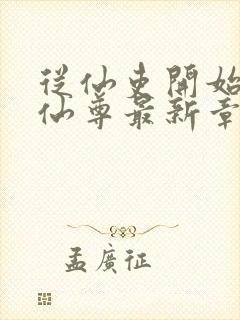 從仙吏開始
仙尊最新章
孟廣征